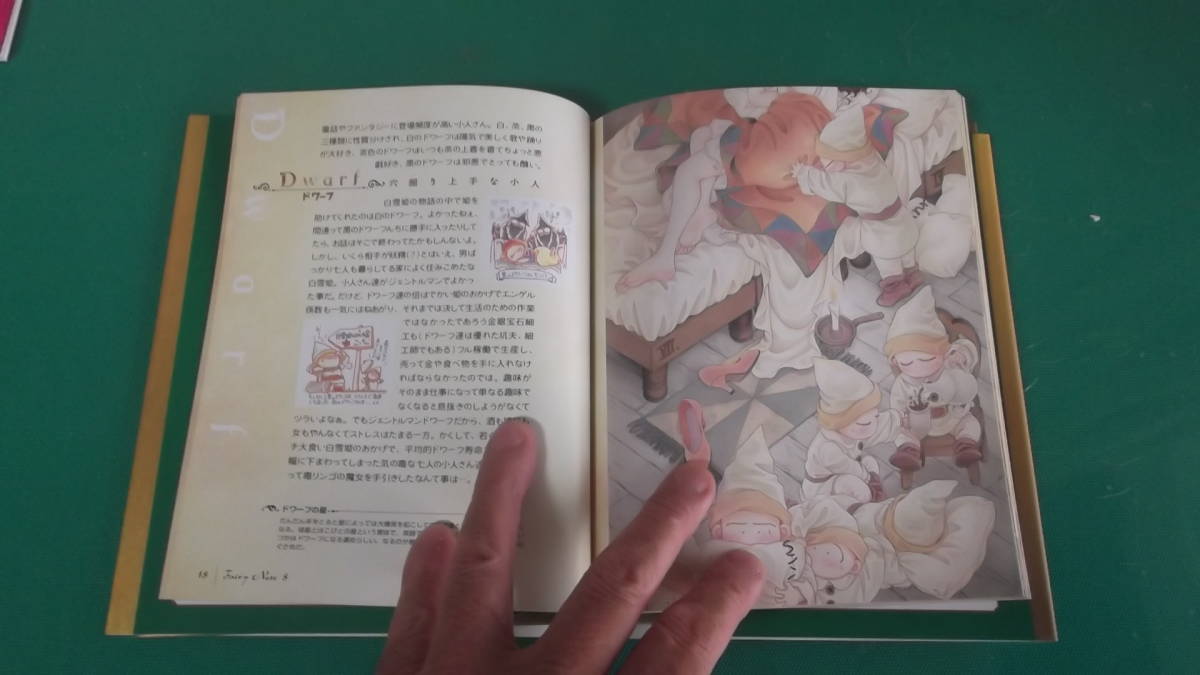 Dwarf
童話やファンタジーに登場頻度が高い小人さん。白、茶、黒の
三種類に性質分けされ、白のドワーフは陽気で美しく歌や踊り
が大好き、茶色のドワーフはいつも茶の上着を着てちょっと悪
戯好き、黒のドワーフは邪悪でとっても醜い。
Dwarf 穴掘り上手な小人
ドワーフ
白雪姫の物語の中で姫を
助けてくれたのは白のドワーフ。よかったねぇ、
間違って黒のドワーフんちに勝手に入ったりして
たら、お話はそこで終わってたかもしんないよ。
しかし、いくら相手が妖精(?)とはいえ、男ば
っかり七人も暮らしてる家によく住みこめたな
白雪姫。小人さん達がジェントルマンでよかっ
た事だ。だけど、ドワーフ達の倍はでかい姫のおかげでエンゲル
係数も一気にはねあがり、それまでは決して生活のための作業
ではなかったであろう金銀宝石細
工も(ドワーフ達は優れた坑夫、細
工師でもある)フル稼働で生産し、
売って金や食べ物を手に入れなけ
ればならなかったのでは。趣味が
そのまま仕事になって単なる趣味で
なくなると息抜きのしようがなくて
ツラいよなぁ。でもジェントルマンドワーフだから、酒も
女もやんなくてストレスはたまる一方。かくして、若
手大食い白雪姫のおかげで、平均的ドワーフ寿命
幅に下まわってしまった気の毒な七人の小人さん
って毒リンゴの魔女を手引きしたなんて事は…。
ドワーフの星
だんだん年をとると星によっては大爆発を起こして
なる。矮星とはこびとの星という意味で、英語
つかは ドワーフになる運命らしい。なるのか
ぐさめだ。
18 Fairy Note 8
VII.